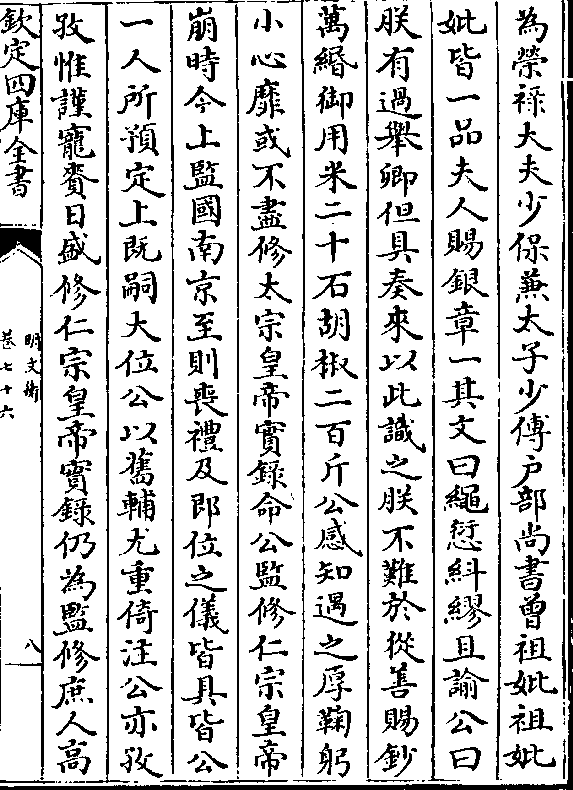 為榮禄大夫少保兼太子少傅户部尚書曽祖妣祖妣
妣皆一品夫人賜銀章一其文曰繩愆糾繆且諭公曰
朕有過舉卿但具奏來以此識之朕不難於從善賜鈔
萬緡御用米二十石胡椒二百斤公感知遇之厚鞠躬
小心靡或不盡修太宗皇帝實録命公監修仁宗皇帝
崩時今上監國南京至則喪禮及即位之儀皆具皆公
一人所預定上既嗣大位公以舊輔尤重倚注公亦孜
孜惟謹寵賚日盛修仁宗皇帝實録仍為監修庶人高
欽定四庫全書
明文衡
卷七十六
八